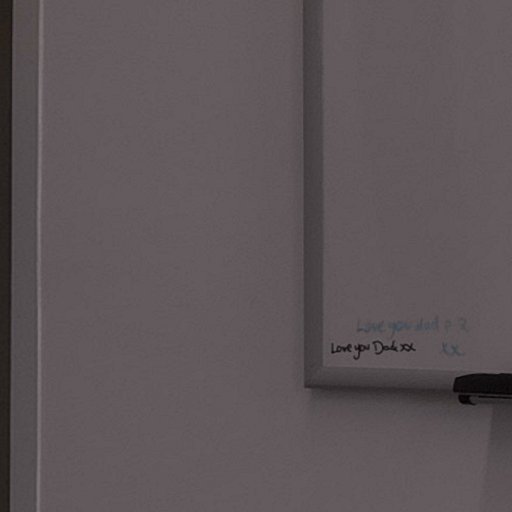 Love you dad
Love you Dad xx
xx